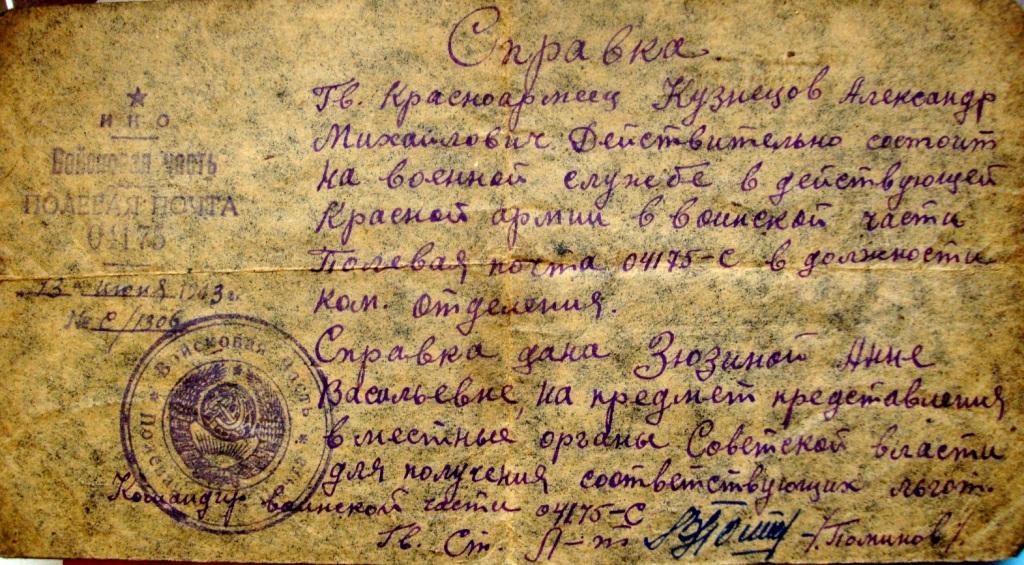 Справка
Гв. Красноармеец Кузнецов Александр
Михайлович Действительно состоит
на военной службе в действующей
Красной армии в воинской части
Полевая почта 04175-С в должности
ком. отделения.
Справка дана Зюзиной Анне
Васильевне, на предмет представления
в местные органы Советской власти
для получения соответствующих льгот.
Командир воинской части 04175-С
Гв. Ст. Л-т /Поминов/.
НКО
Войсковая часть
ПОЛЕВАЯ ПОЧТА
04175
"13" июня 1943 г.
№ С/1306
Войсковая Часть